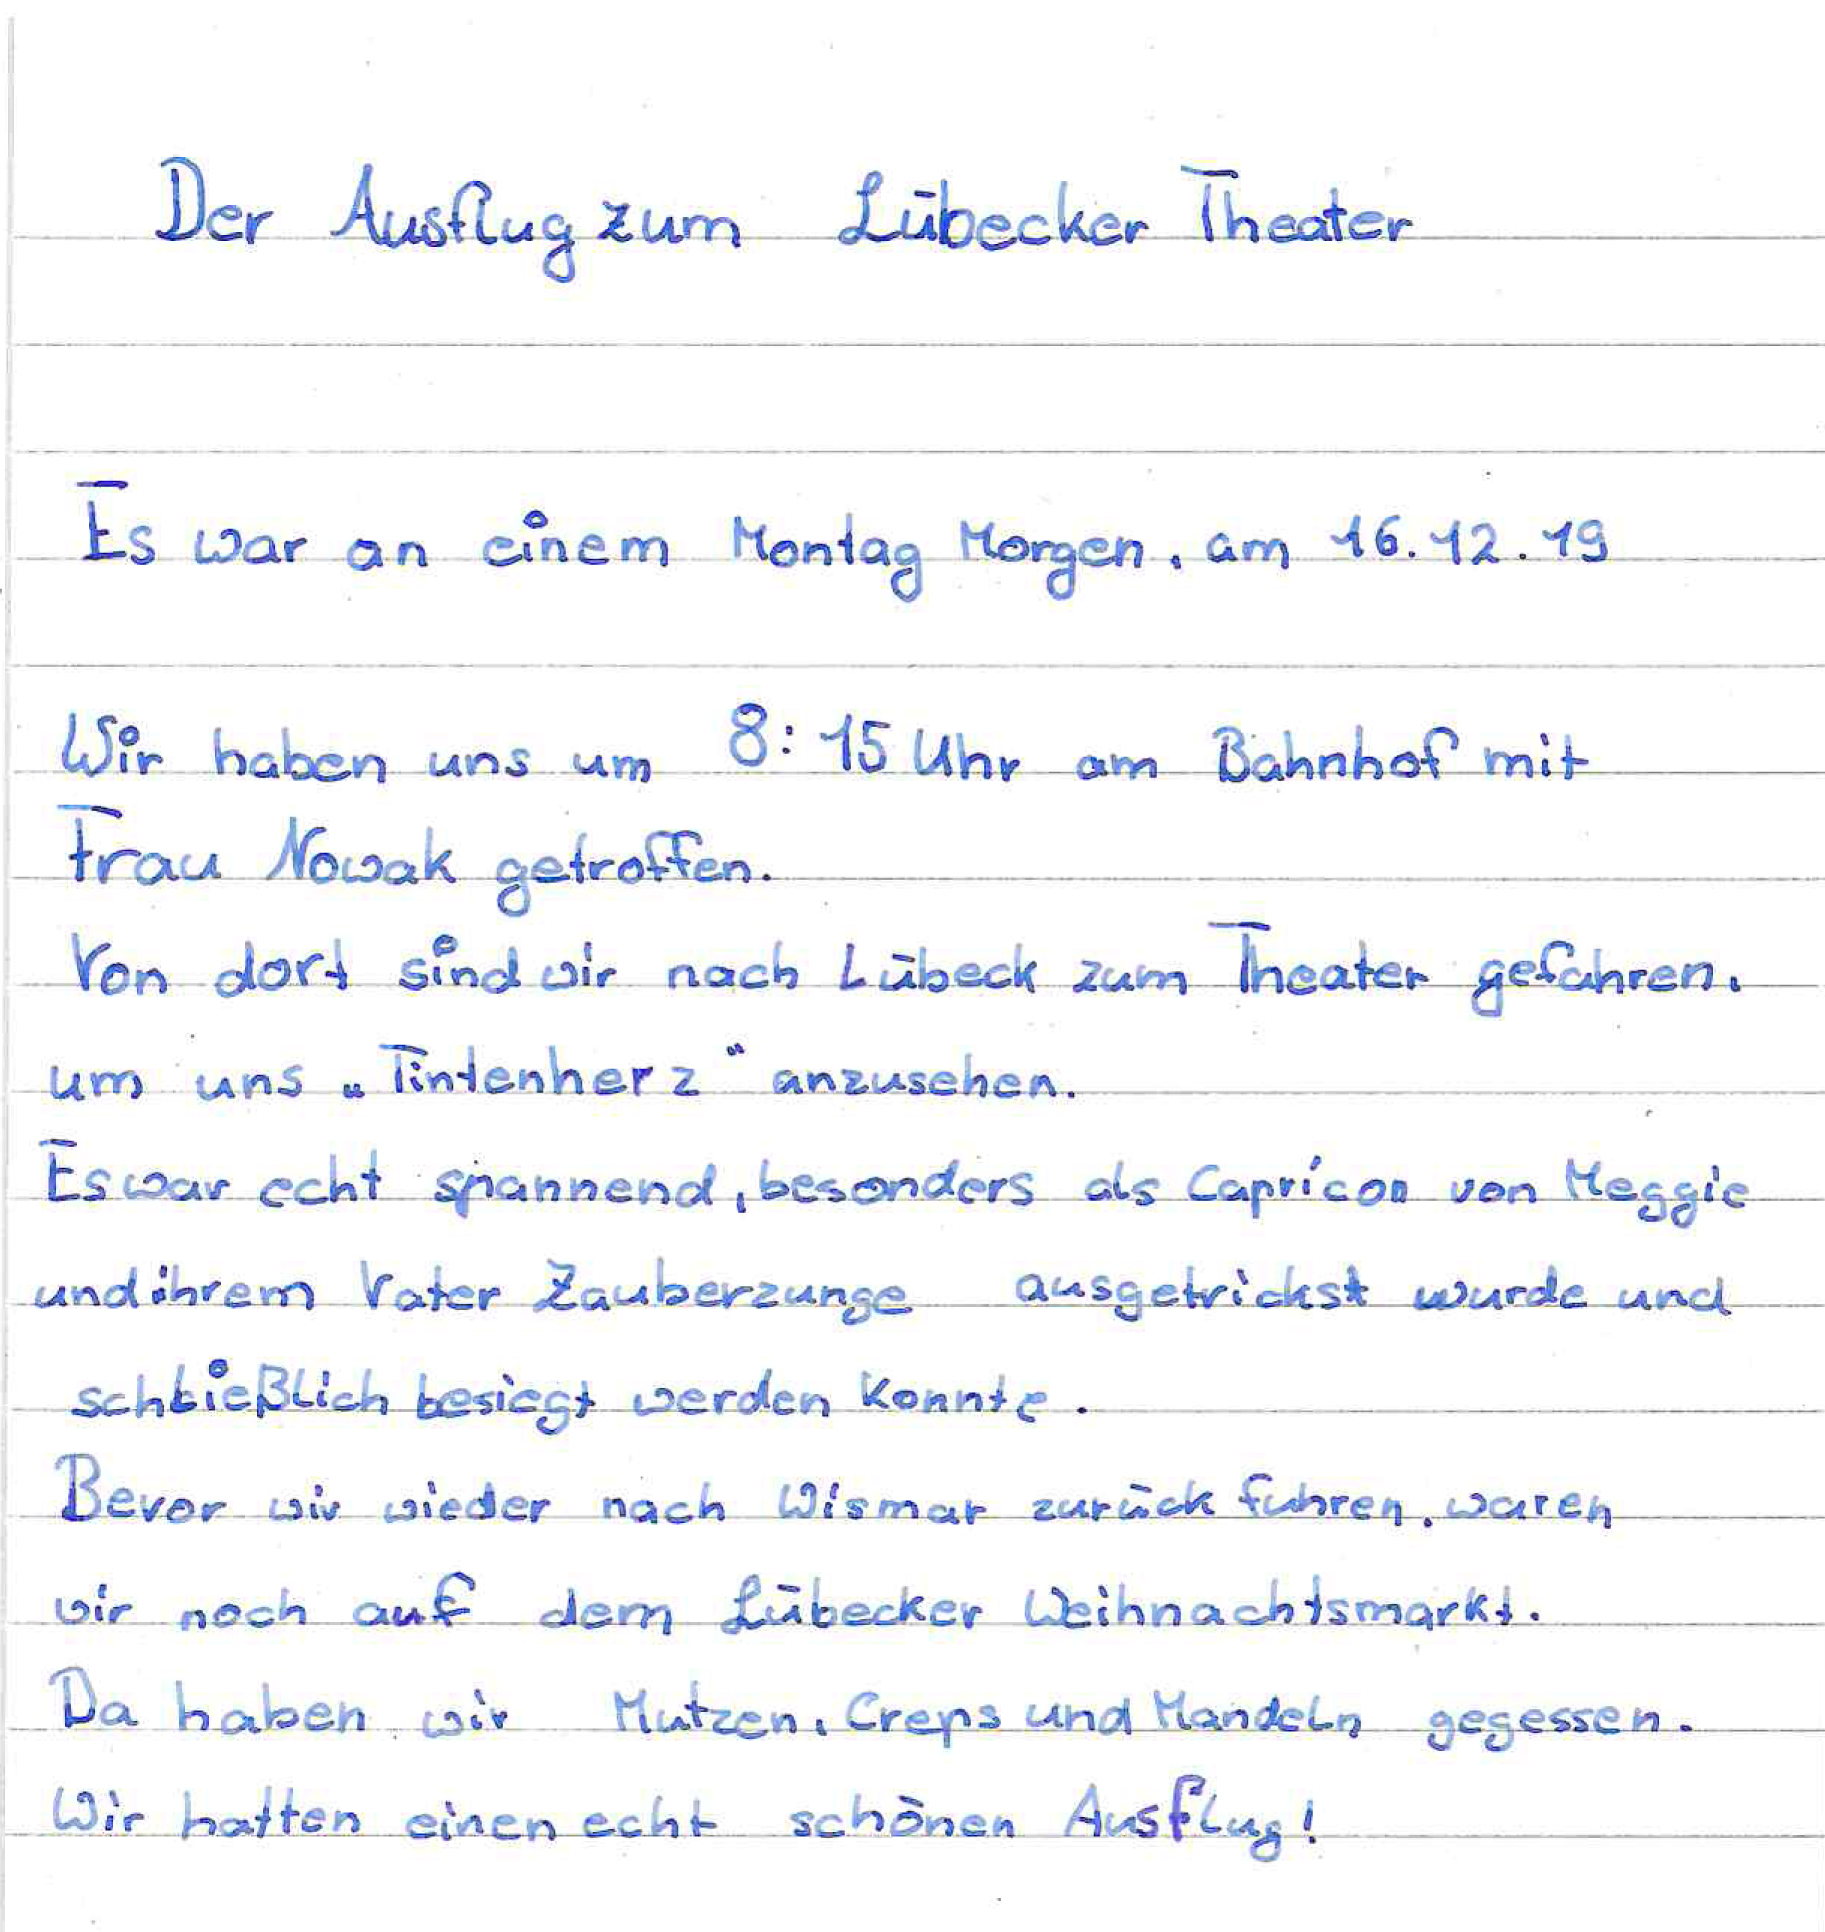 Der Ausflug zum Lübecker Theater
Es war an einem Montag Morgen, am 16.12.19
Wir haben uns um 8:15 Uhr am Bahnhof mit
Frau Nowak getroffen.
Von dort sind wir nach Lübeck zum Theater gefahren,
um uns „Tintenherz“ anzusehen.
Es war echt spannend, besonders als Capricon von Meggie
und ihrem Vater Zauberzunge ausgetrickst wurde und
schließlich besiegt werden konnte.
Bevor wir wieder nach Wismar zurück fuhren, waren
wir noch auf dem Lübecker Weihnachtsmarkt.
Da haben wir Mutzen, Creps und Mandeln gegessen.
Wir hatten einen echt schönen Ausflug!